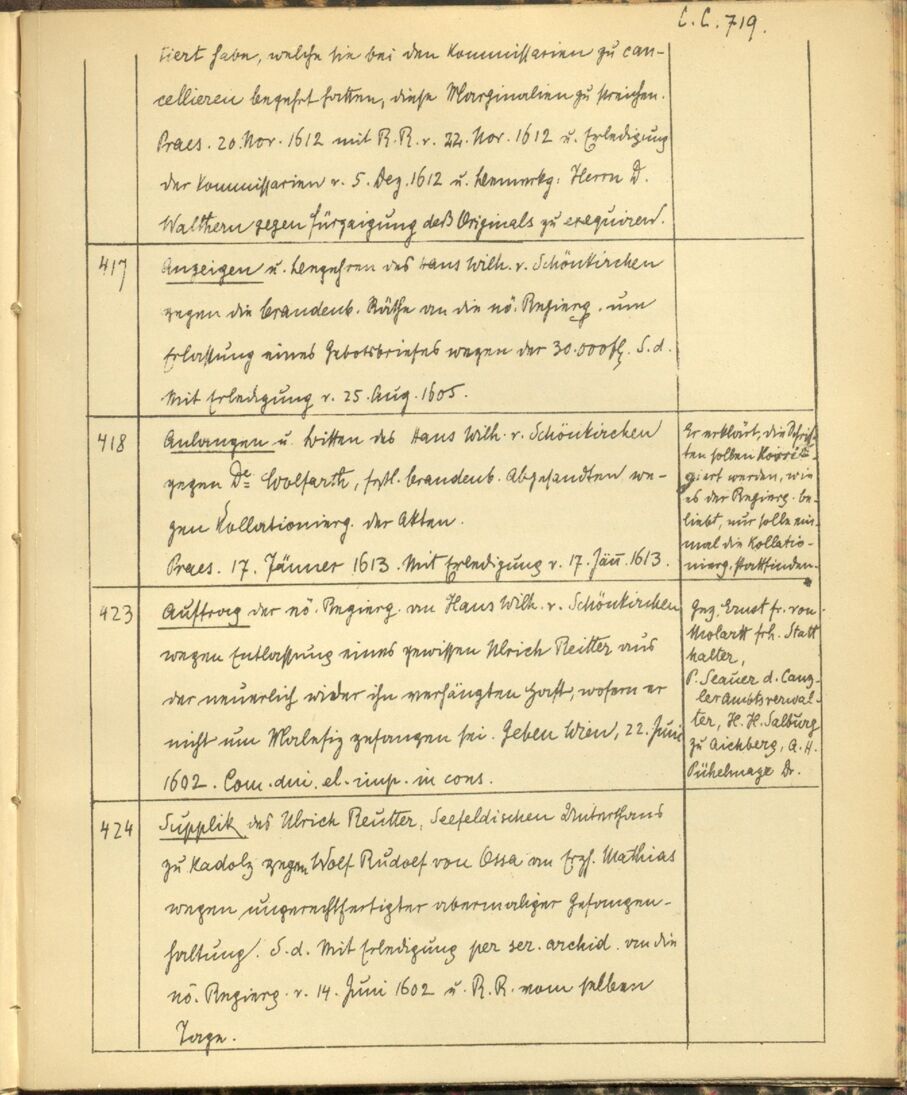 C. C. 719.
tiert habe, welche sie bei den Kommissarien zu can-
cellieren begehrt hatten, diese Marginalien zu streichen.
Praes. 20. Nov. 1612 mit R. R. v. 22. Nov. 1612 u. Erledigung
der Kommissarien v. 5. Dez. 1612 u. Bemerkg: Herrn D.
Walthern gegen Fürzaigung deß Originals zu exequiren.
417
Anzeigen u. Begehren des Hans Wilh. v. Schönkirchen
gegen die brandenb. Räthe an die nö. Regierg. um
Erlassung eines Gebotsbriefes wegen der 30.000 fl. S. d.
Mit Erledigung v. 25. Aug. 1605.
418
Anlangen u. Bitten des Hans Wilh. v. Schönkirchen
gegen Dr. Wolfarth, fstl. brandenb. Abgesandten we-
gen Kollationierg. der Akten.
Praes. 17. Jänner 1613. Mit Erledigung v. 17. Jän̄ 1613.
Er erklärt, die Schrif-
ten sollen korri-
giert werden, wie
es der Regierg. be-
liebt, nur solle ein-
mal die Kollatio-
nierg. stattfinden.
423
Auftrag der nö. Regierg. an Hans Wilh. v. Schönkirchen
wegen Entlassung eines gewissen Ulrich Reitter aus
der neuerlich wider ihn verhängten Haft, wofern er
nicht um Malefiz gefangen sei. Geben Wien, 22. Juni
1602. Com. dni. el. imp. in cons.
Gez. Ernst fr. von
Molartt frh. Statt
halter,
P. Seauer d. Canz-
ler Ambtsverwal-
ter, H. H. Salburg
zu Aichberg, A. H.
Pühelmayr Dr.
424
Supplik des Ulrich Reutter, Seefeldischen Unterthans
zu Kadolz gegen Wolf Rudolf von Ossa an Erzh. Mathias
wegen ungerechtfertigter abermaliger Gefangen-
haltung. S. d. Mit Erledigung per ser. archid. an die
nö. Regierg. v. 14. Juni 1602 u. R. R. vom selben
Tage.